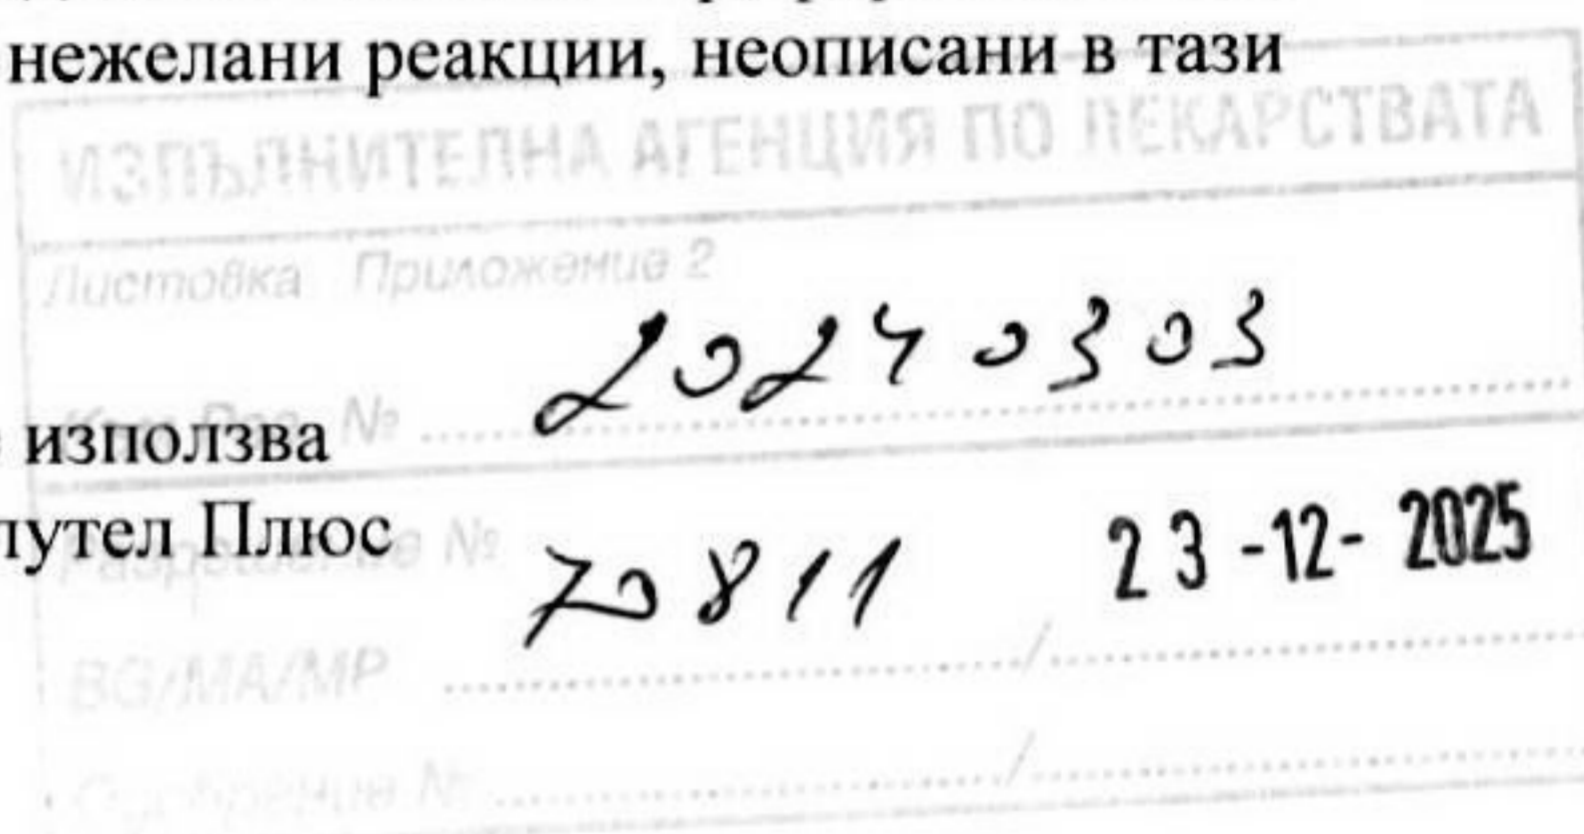 нежелани реакции, неописани в тази
ИЗПЪЛНИТЕЛНА АГЕНЦИЯ ПО ЛЕКАРСТВАТА
Листовка Приложение 2
Към Рег. № 20240303
използва
Разрешение № 70811 23-12-2025
лутел Плюс
BG/MA/MP /
Одобрение № /